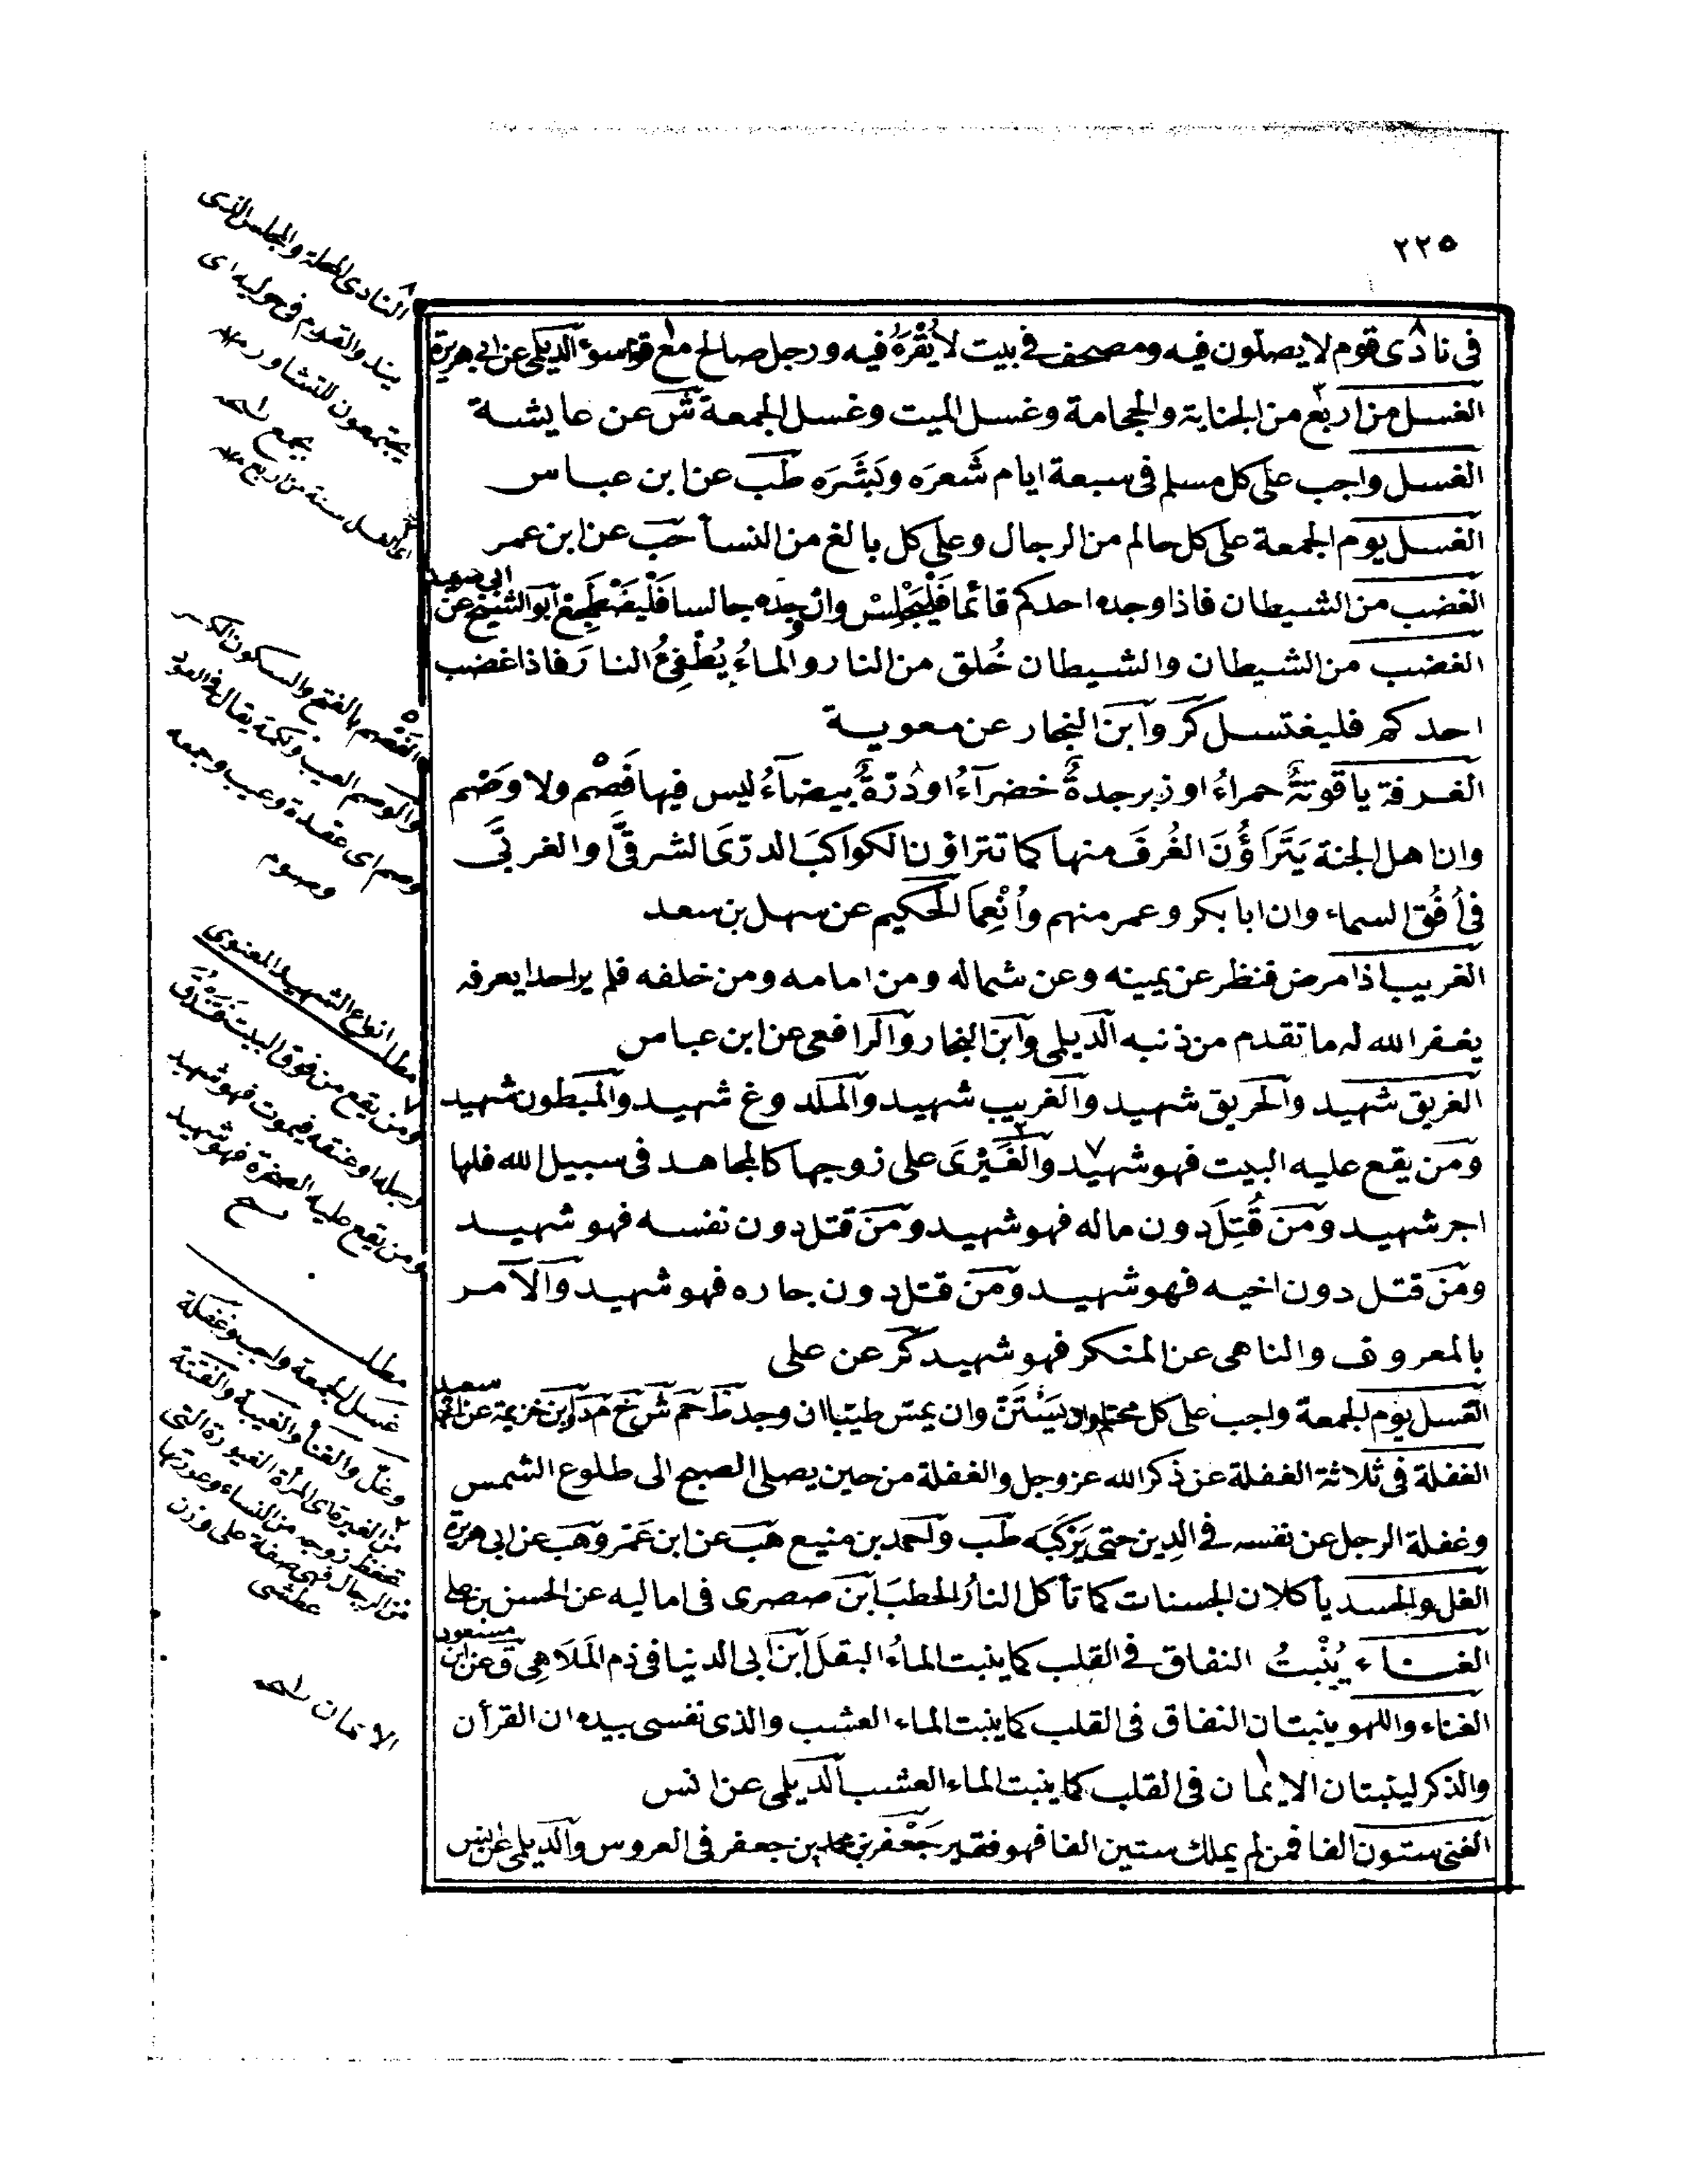 ٢٢٥
فى نادى قوم لا يصلون فيه ومصحف فى بيت لا يُقْرَءُ فيه ورجل صالح مع قوم سوء الديلمى عن ابى هريرة
الغسل من اربع من الجنابة والحجامة وغسل الميت وغسل الجمعة ش عن عايشة
الغسل واجب على كل مسلم فى سبعة ايام شَعرَه وبَشَرَه طب عن ابن عباس
الغسل يوم الجمعة على كل حالم من الرجال وعلى كل بالغ من النسأ حب عن ابن عمر
الغضب من الشيطان فاذا وجده احدكم قائما فَلْيَجْلِسْ وان وجده جالسا فَلْيَضْطَجِعْ ابو الشيخ عن ابى سعيد
الغضب من الشيطان والشيطان خُلق من النار والماءُ يُطْفِئُ النارَ فاذا غضب
احدكم فليغتسل كر وابن النجار عن معوية
الغرفة ياقوتةٌ حمراءُ او زبرجدةٌ خضرآءُ او دُرّةٌ بيضآءُ ليس فيها فَصْم ولا وَصْم
وان اهل الجنة يَتَرَاؤُنَ الغُرفَ منها كما تتراؤن الكواكبَ الدرّىَ الشرقىَّ او الغربىَّ
فى اُفُق السماء وان ابا بكر وعمر منهم واُنْعِمَا الحكيم عن سهل بن سعد
الغريب اذا مرض فنظر عن يمينه وعن شماله ومن امامه ومن خلفه فلم ير احدا يعرفه
يغفر الله له ما تقدم من ذنبه الديلمى وابن النجار والرافعى عن ابن عباس
الغريق شهيد والحريق شهيد والغريب شهيد والملدوغ شهيد والمبطون شهيد
ومن يقع عليه البيت فهو شهيد والغَيْرَى على زوجها كالمجاهد فى سبيل الله فلها
اجر شهيد ومن قُتِلَ دون ماله فهو شهيد ومن قتل دون نفسه فهو شهيد
ومن قتل دون اخيه فهو شهيد ومن قتل دون جاره فهو شهيد والآمر
بالمعروف والناهى عن المنكر فهو شهيد كر عن على
الغسل يوم الجمعة واجب على كل محتلم وان يَسْتَنَّ وان يمسّ طيبا ان وجد ط حم ش خ م د وابن خزيمة عن ابى سعيد
الغفلة فى ثلاثة الغفلة عن ذكر الله عز وجل والغفلة من حين يصلى الصبح الى طلوع الشمس
وغفلة الرجل عن نفسه فى الدين حتى يَرْكَبَه طب واحمد بن منيع هب عن ابن عَمْرو هب عن ابى هريرة
الغل والحسد يأكلان الحسنات كما تأكل النارُ الحطبَ ابن صصرى فى اماليه عن الحسن بن على
الغناء يُنْبِتُ النفاق فى القلب كما ينبت الماءُ البقلَ ابن ابى الدنيا فى ذم المَلَاهِى ق عن ابن مسعود
الغناء واللهو ينبتان النفاق فى القلب كما ينبت الماء العشب والذى نفسى بيده ان القرأن
والذكر لينبتان الايمان فى القلب كما ينبت الماء العشب الديلمى عن انس
الغنى ستون الفا فمن لم يملك ستين الفا فهو فقير جَعْفر بن محمد بن جعفر فى العروس والديلمى عن انس
النادى المحلة والمجلس الذى
يند والقوم فى حوليه اى
يجتمعون للتشاور
بجمع
اى الغسل سنة من اربع
الفَصْم بالفتح والسكون الكسر
والوصم العيب ونكمة يقال فى العود
وصم اى عقدة وعيب وجمعه
وصوم
مطلب انواع الشهيد المعنوى
ومن يقع من فوق البيت فتندق
رجله او عنقه فيموت فهو شهيد
ومن تقع عليه الصخرة فهو شهيد
مطلب
غسل الجمعة واجب وغفلة
وغلّ والغنأ والغيبة والفتنة
من الغيرة اى المرأة الغيورة التى
تحفظ زوجه من النساء وعورتها
من الرجال فهى صفة على وزن
عطشى
الايمان